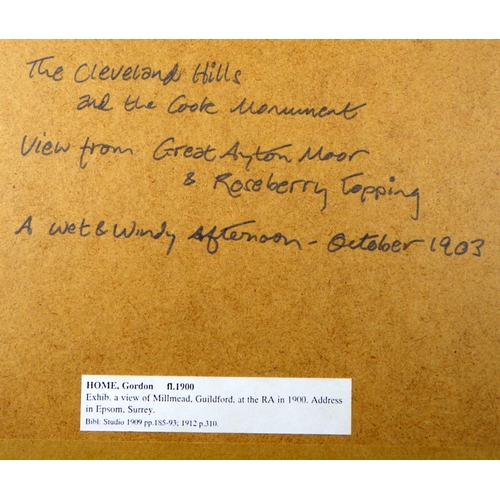 The Cleveland Hills
and the Cook Monument
View from Great Ayton Moor
& Roseberry Topping
A Wet & Windy Afternoon - October 1903
HOME, Gordon fl.1900
Exhib. a view of Millmead, Guildford, at the RA in 1900. Address
in Epsom, Surrey.
Bibl: Studio 1909 pp.185-93; 1912 p.310.